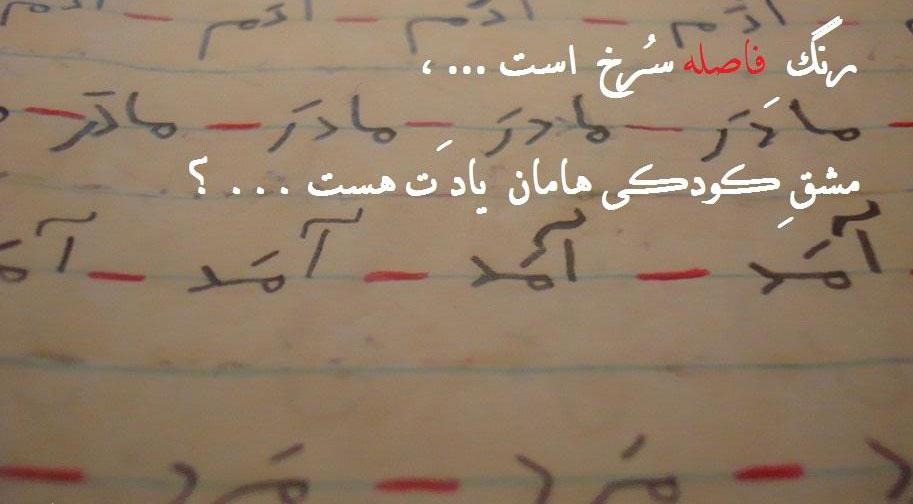 آدَم - آدَم - آدَم
رنگ فاصله سُرخ است ... ،
مادَر - مادَر - مادَر - مادَر
مشقِ کودکی هامان یادَت هست . . . ؟
آمَد - آمَد - آمَد -
- مَرد - مَرد -